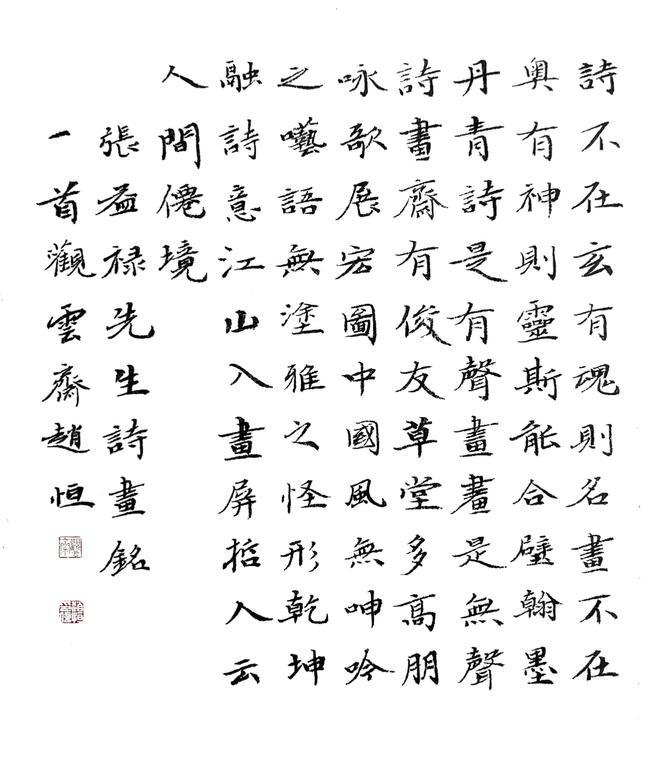 詩不在玄有魂則名畫不在
奥有神則靈斯能合璧翰墨
丹青詩是有聲畫畫是無聲
詩畫齋有俊友草堂多高朋
咏歌展宏圖中國風無呻吟
之囈語無塗雅之怪形乾坤
融詩意江山入畫屏哲人云
人間僊境
張益禄先生詩畫銘
一首觀雲齋趙恒